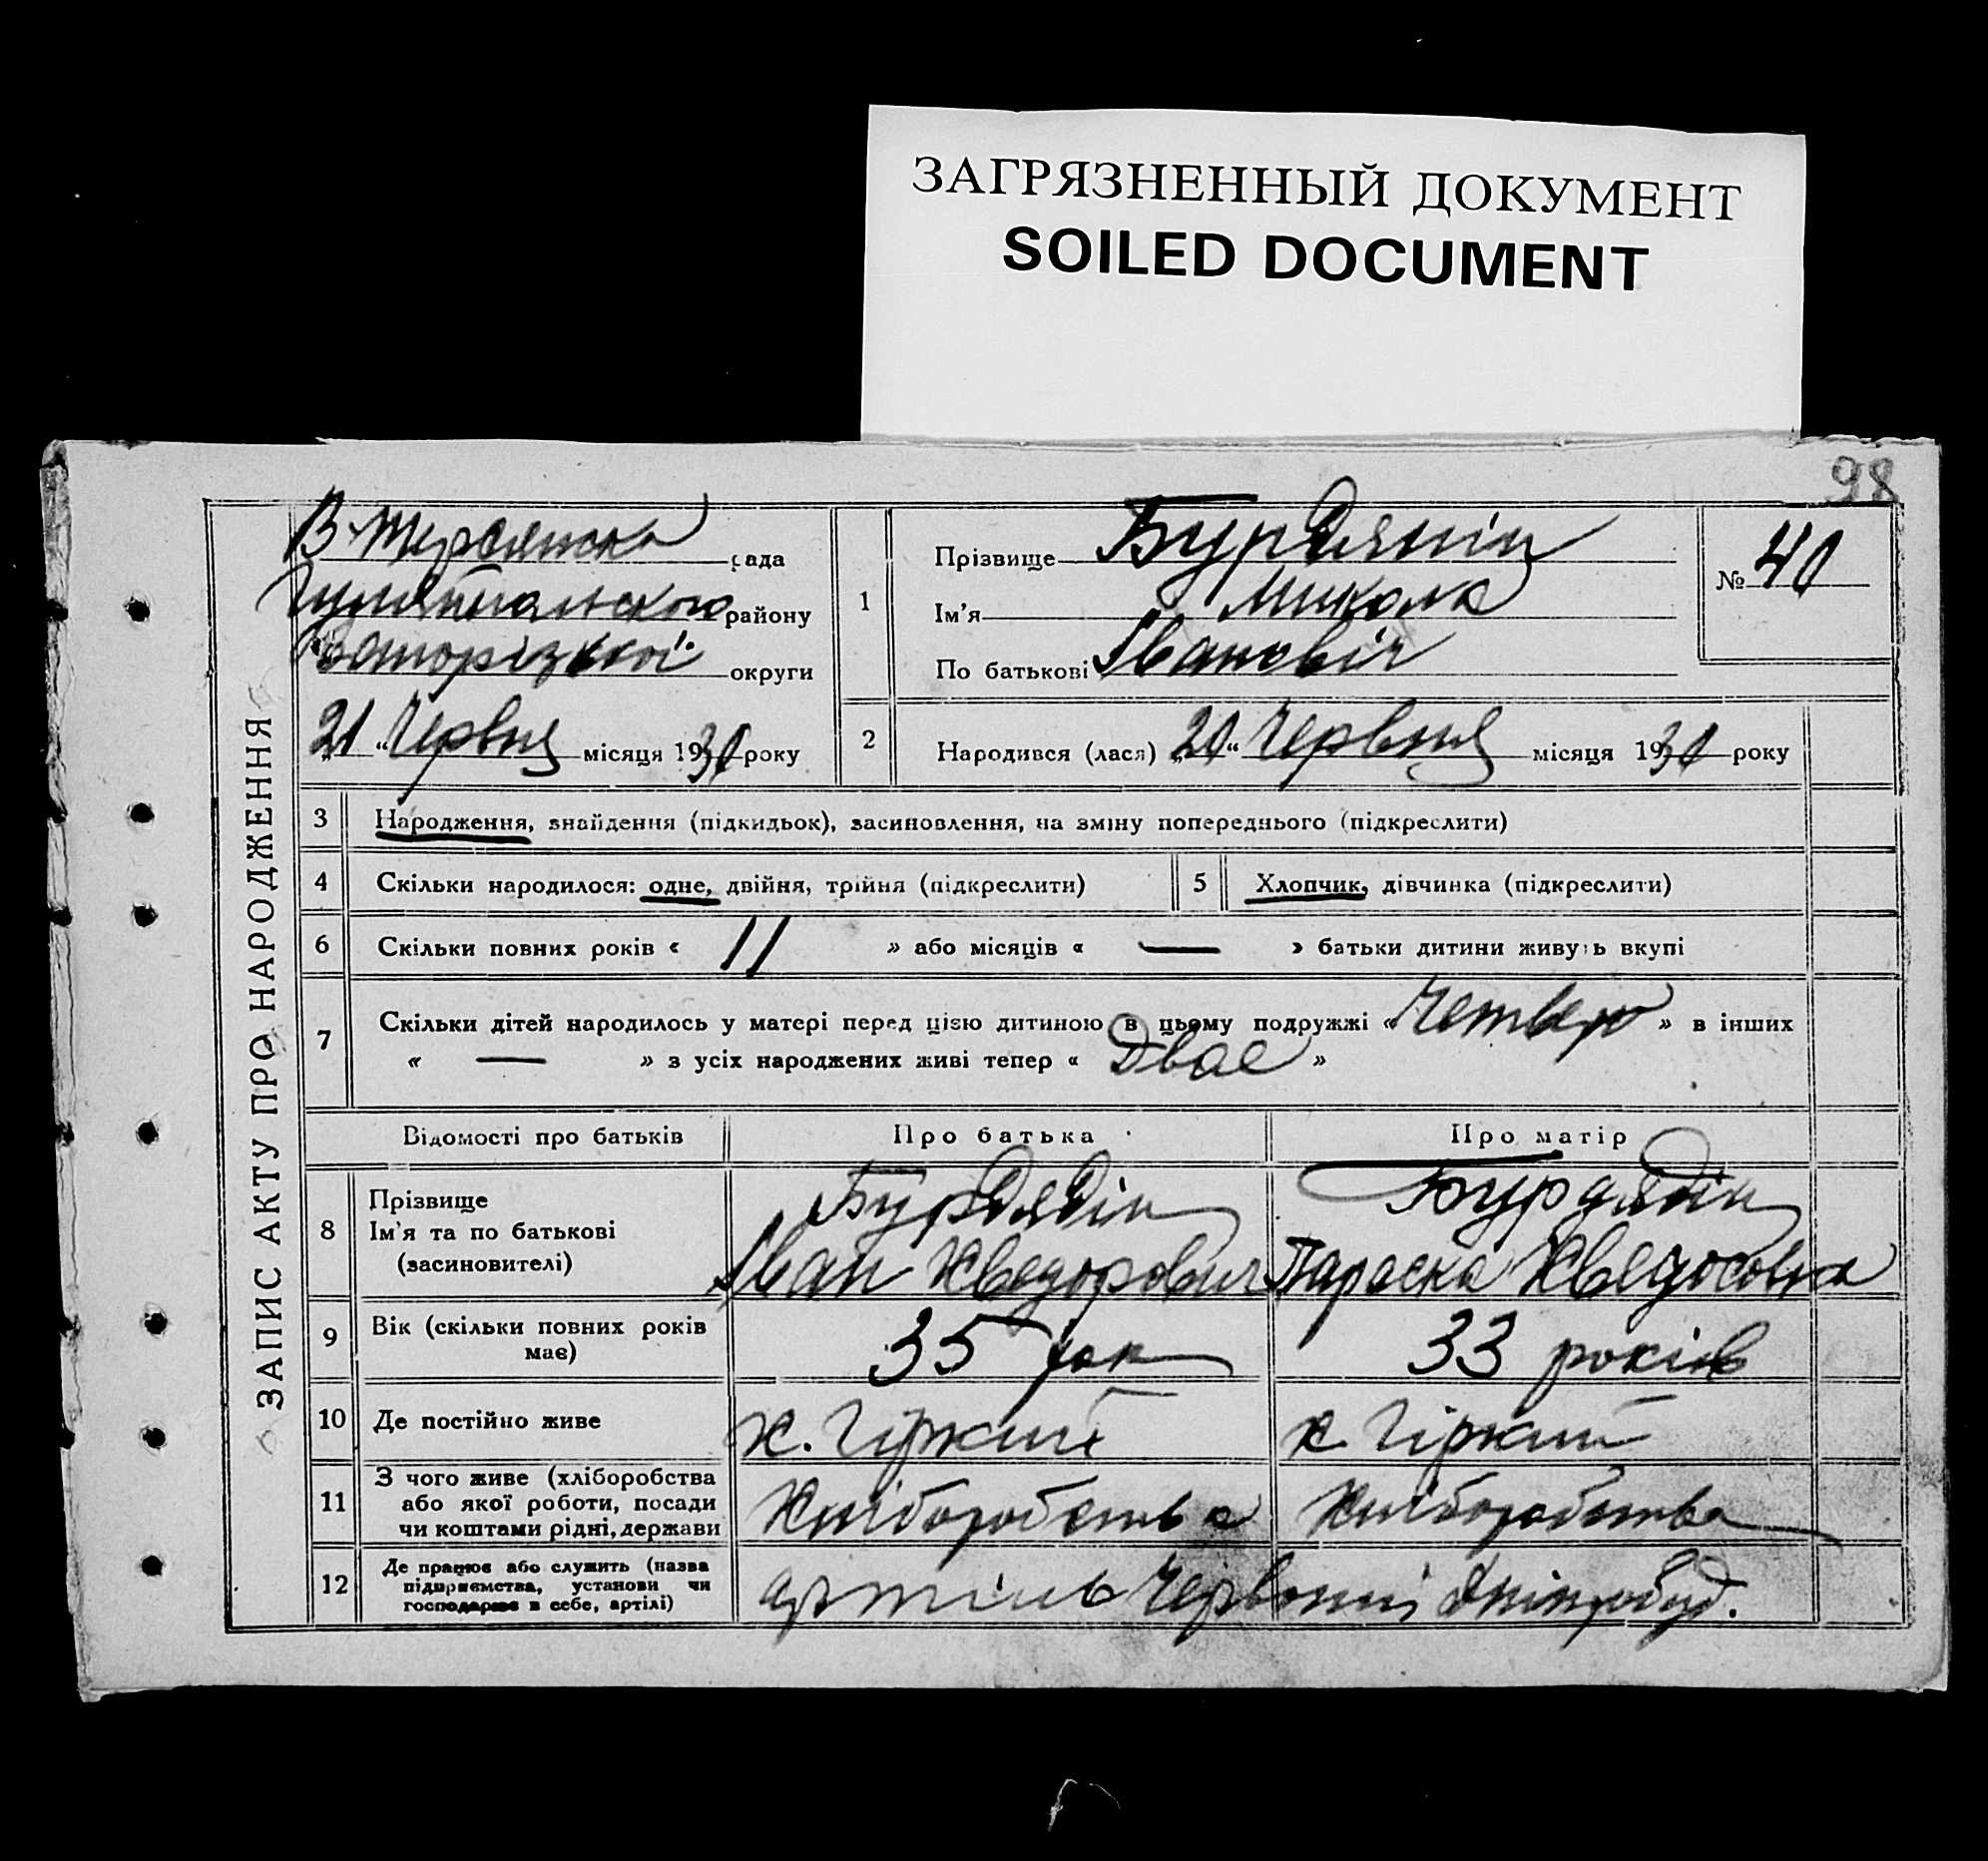 ЗАГРЯЗНЕННЫЙ ДОКУМЕНТ
SOILED DOCUMENT
98
ЗАПИС АКТУ ПРО НАРОДЖЕННЯ
В-Терсянська рада
Гуляйпільського району
Запорізької округи
„21“ Червня місяця 1930 року
1
Прізвище
Ім'я Микола
По батькові Іванович
№ 40
2 Народився (лася) „20“ Червня місяця 1930 року
3 Народження, знайдення (підкидьок), засиновлення, на зміну попереднього (підкреслити)
4 Скільки народилося: одне, двійня, трійня (підкреслити)
5 Хлопчик, дівчинка (підкреслити)
6 Скільки повних років « 11 » або місяців « — » батьки дитини живуть вкупі
7 Скільки дітей народилось у матері перед цією дитиною в цьому подружжі « Четверо » в інших
« — » з усіх народжених живі тепер « Двоє »
Відомості про батьків Про батька Про матір
8 Прізвище
Ім'я та по батькові
(засиновителі)
Іван Хведорович
Параска Хведосовна
9 Вік (скільки повних років
має)
35 рок
33 років
10 Де постійно живе х. Гіркий х. Гіркий
11 З чого живе (хліборобства
або якої роботи, посади
чи коштами рідні, держави
Хліборобства Хліборобства
12 Де працює або служить (назва
підприємства, установи чи
господарює в себе, артілі)
артіль Червоний Дніпробуд.